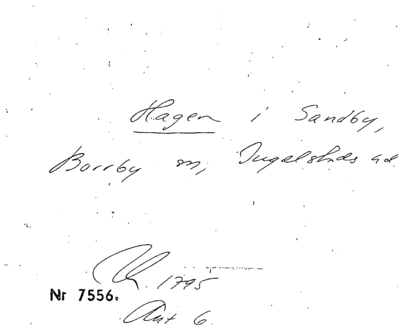 Hagen i Sandby,
Borrby sn, Ingelstads hd
1795
Nr 7556.
Akt 6